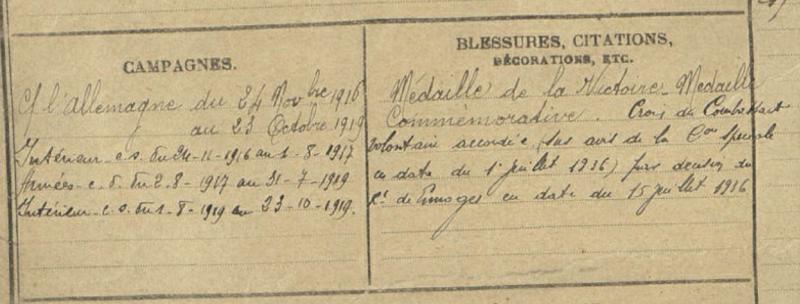 CAMPAGNES.
Cf l'Allemagne du 24 Novbre 1916
au 23 Octobre 1919
Intérieur c.s. du 24-11-1916 au 1-8-1917
Armées c.d. du 2-8-1917 au 31-7-1919
Intérieur c.s. du 1-8-1919 au 23-10-1919.
BLESSURES, CITATIONS,
DÉCORATIONS, ETC.
Médaille de la Victoire. Médaille
Commémorative. Croix du Combattant
volontaire accordée (sur avis de la Con spéciale
en date du 1er juillet 1936) par décision du
de Limoges en date du 15 juillet 1936